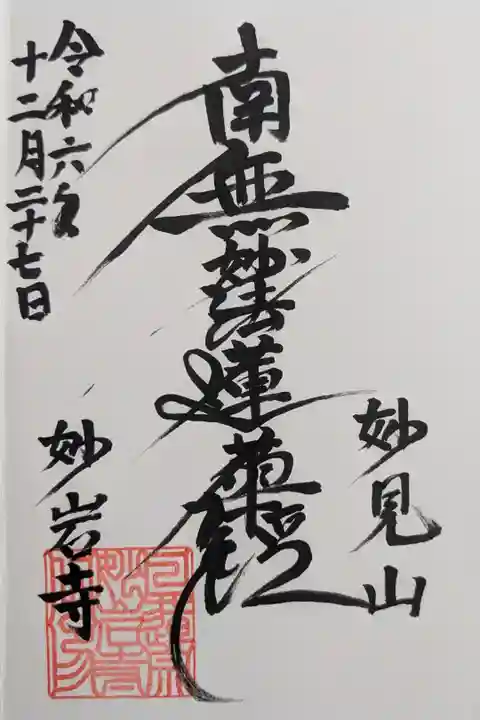 妙見山
南無妙法蓮華經
令和六年
十二月二十七日
妙岩寺